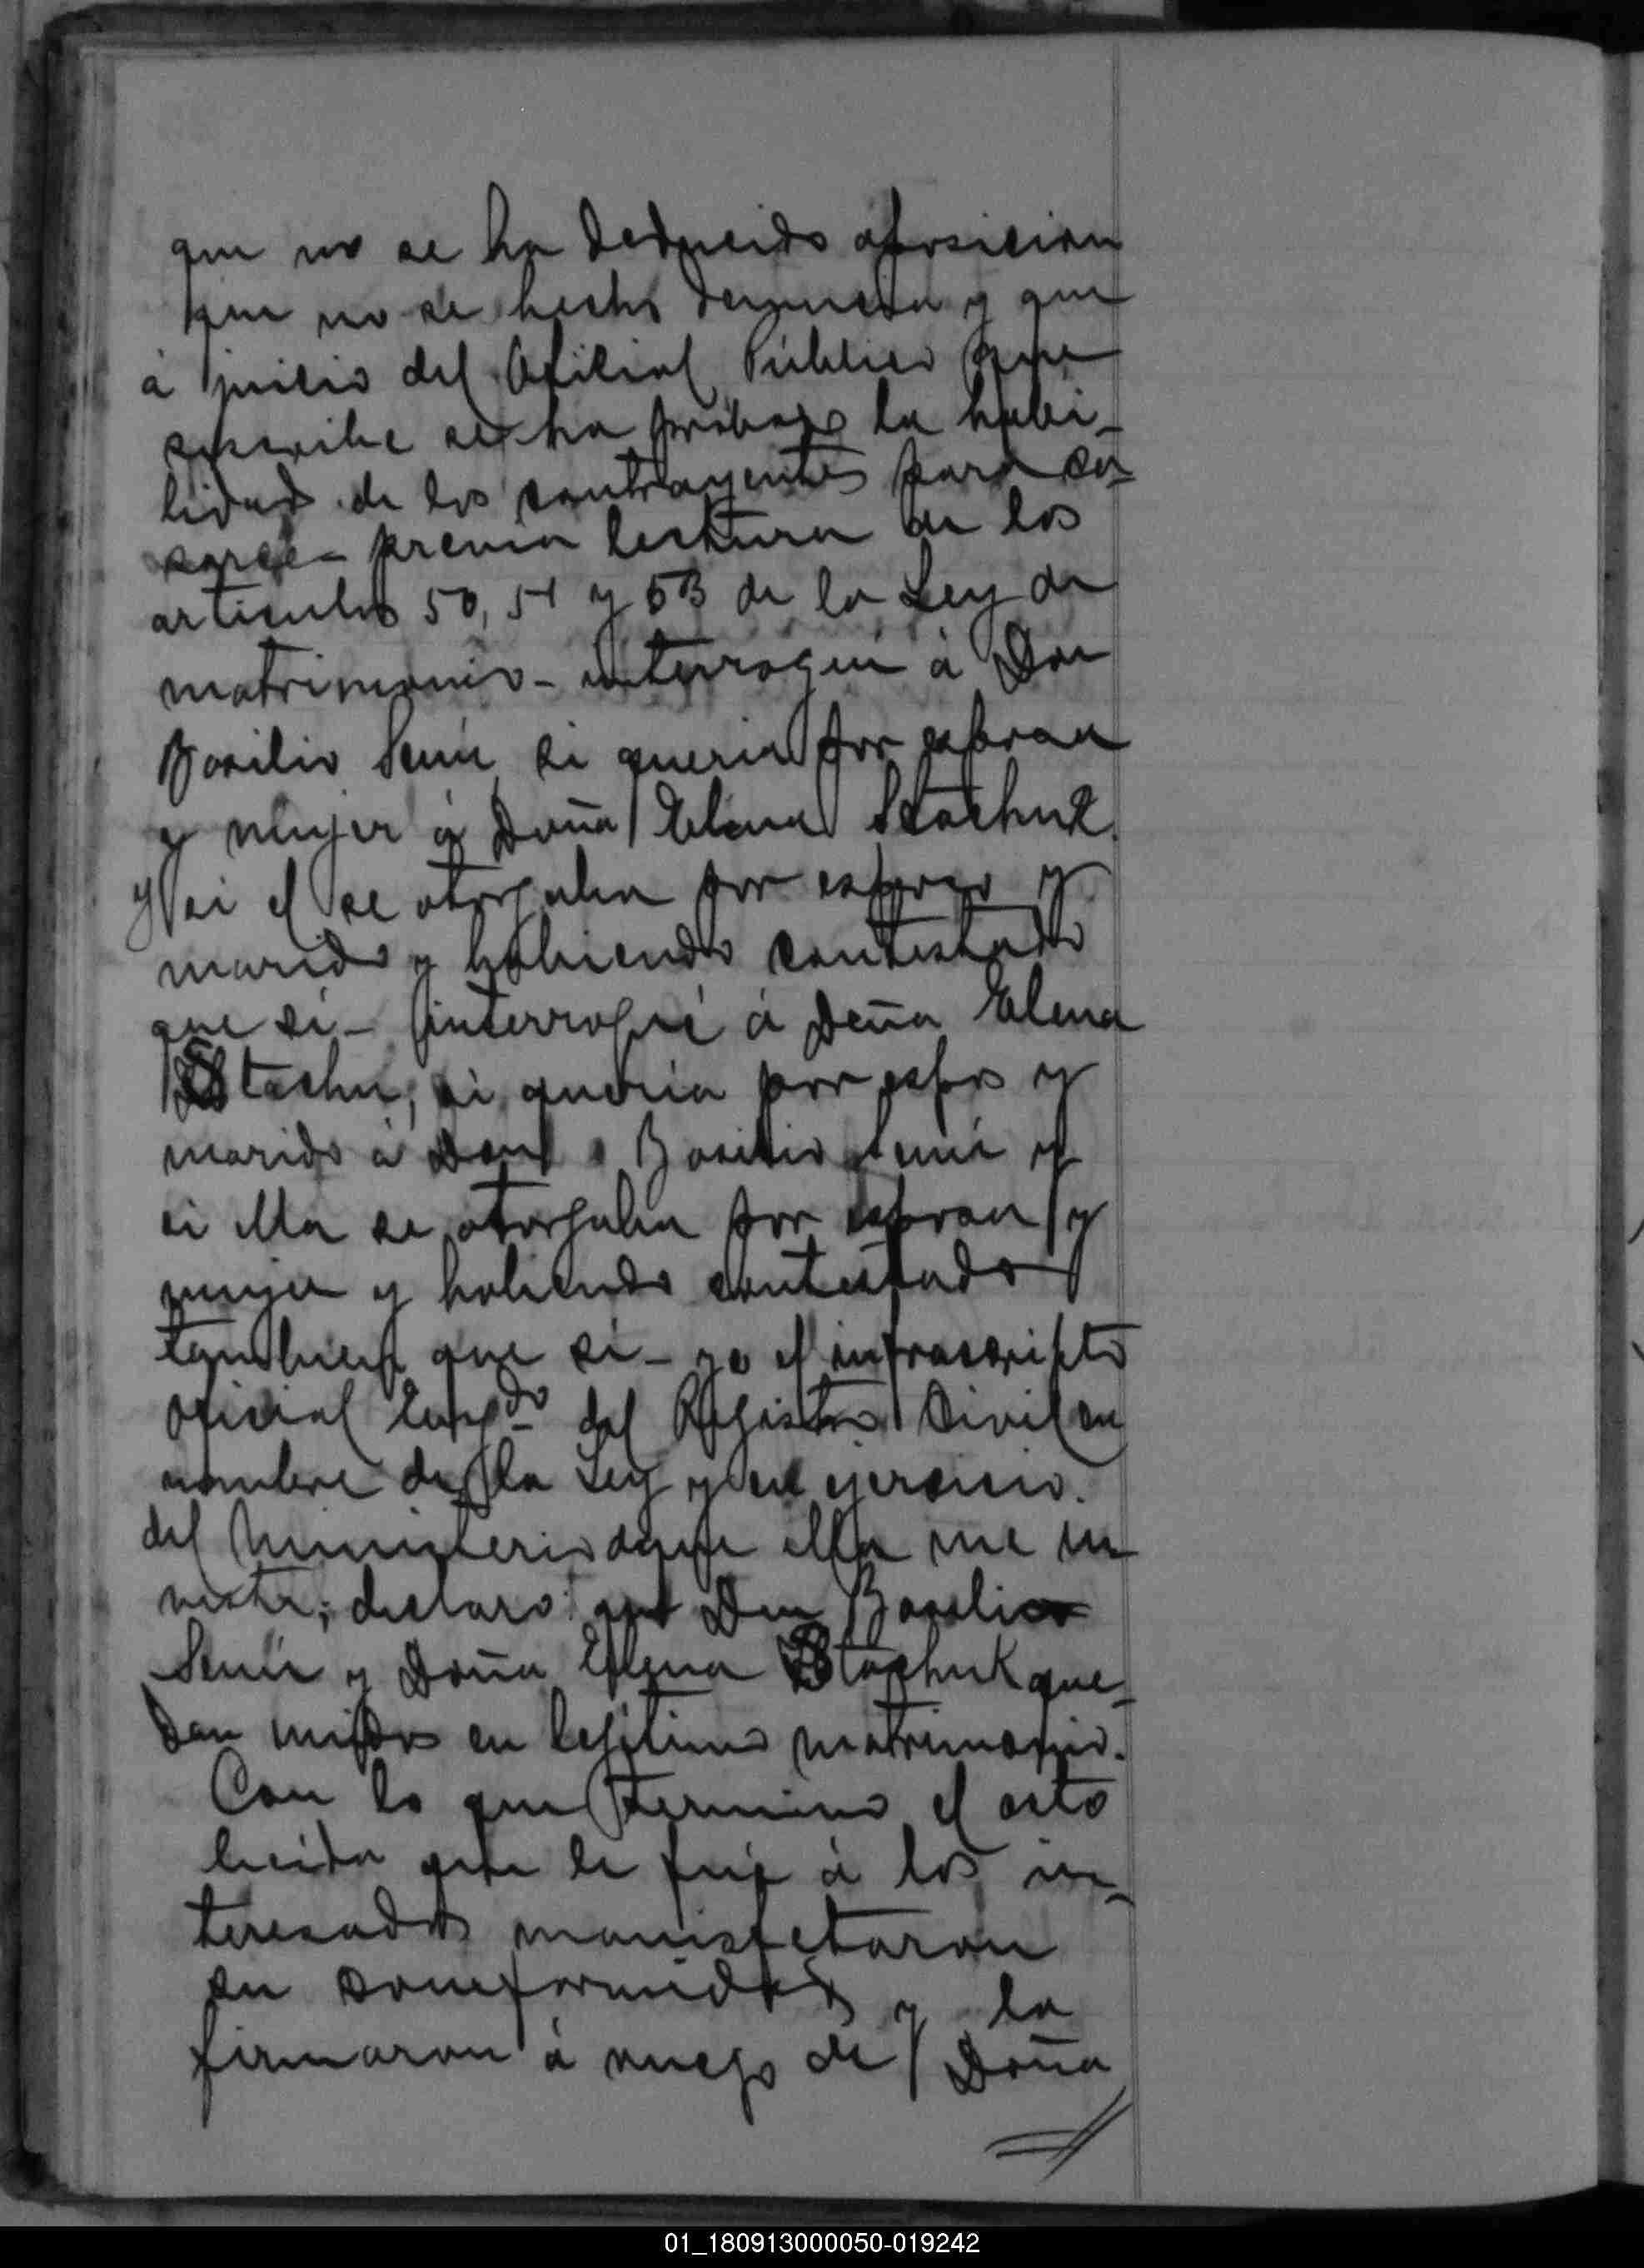 que no se ha deducido oposicion
que no se hecho denuncia y que
á juicio del Oficial Público que
suscribe se ha probado la habi-
lidad de los contrayentes para ca-
sarse - previa lectura de los
articulos 50, 51 y 53 de la Ley de
matrimonio - interrogué á Don
Basilio si queria por esposa
y mujer á Doña Elena Stachuk
y si el se otorgaba por esposo y
marido y habiendo contestado
que si - interrogué á Doña Elena
Stachu, si queria por espos y
marido á Don Basilio y
si ella se otorgaba por esposa y
mujer y habiendo contestado
tambien que si - yo el infrascripto
oficial Encgdo del Registro Civil en
nombre de la Ley y en ejercicio.
del ministerio de que ella me in
viste; declaro: que Don Basilio
y Doña Elena Stachuk que-
dan unidos en lejitimo matrimonio.
Con lo que termino el acto
leida que le fué á los in-
teresados manisfetaron
su comformidad y la
firmaron á ruego de Doña
01_180913000050-019242